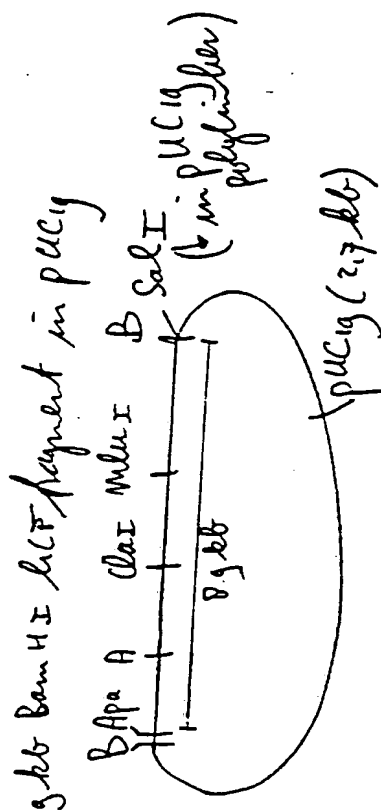 g kb Bam HI hLCP fragment in pUC19
B Apa A ClaI MluI B SalI
(↳ in pUC19
polylinker)
8.9 kb
pUC19 (2,7 kb)